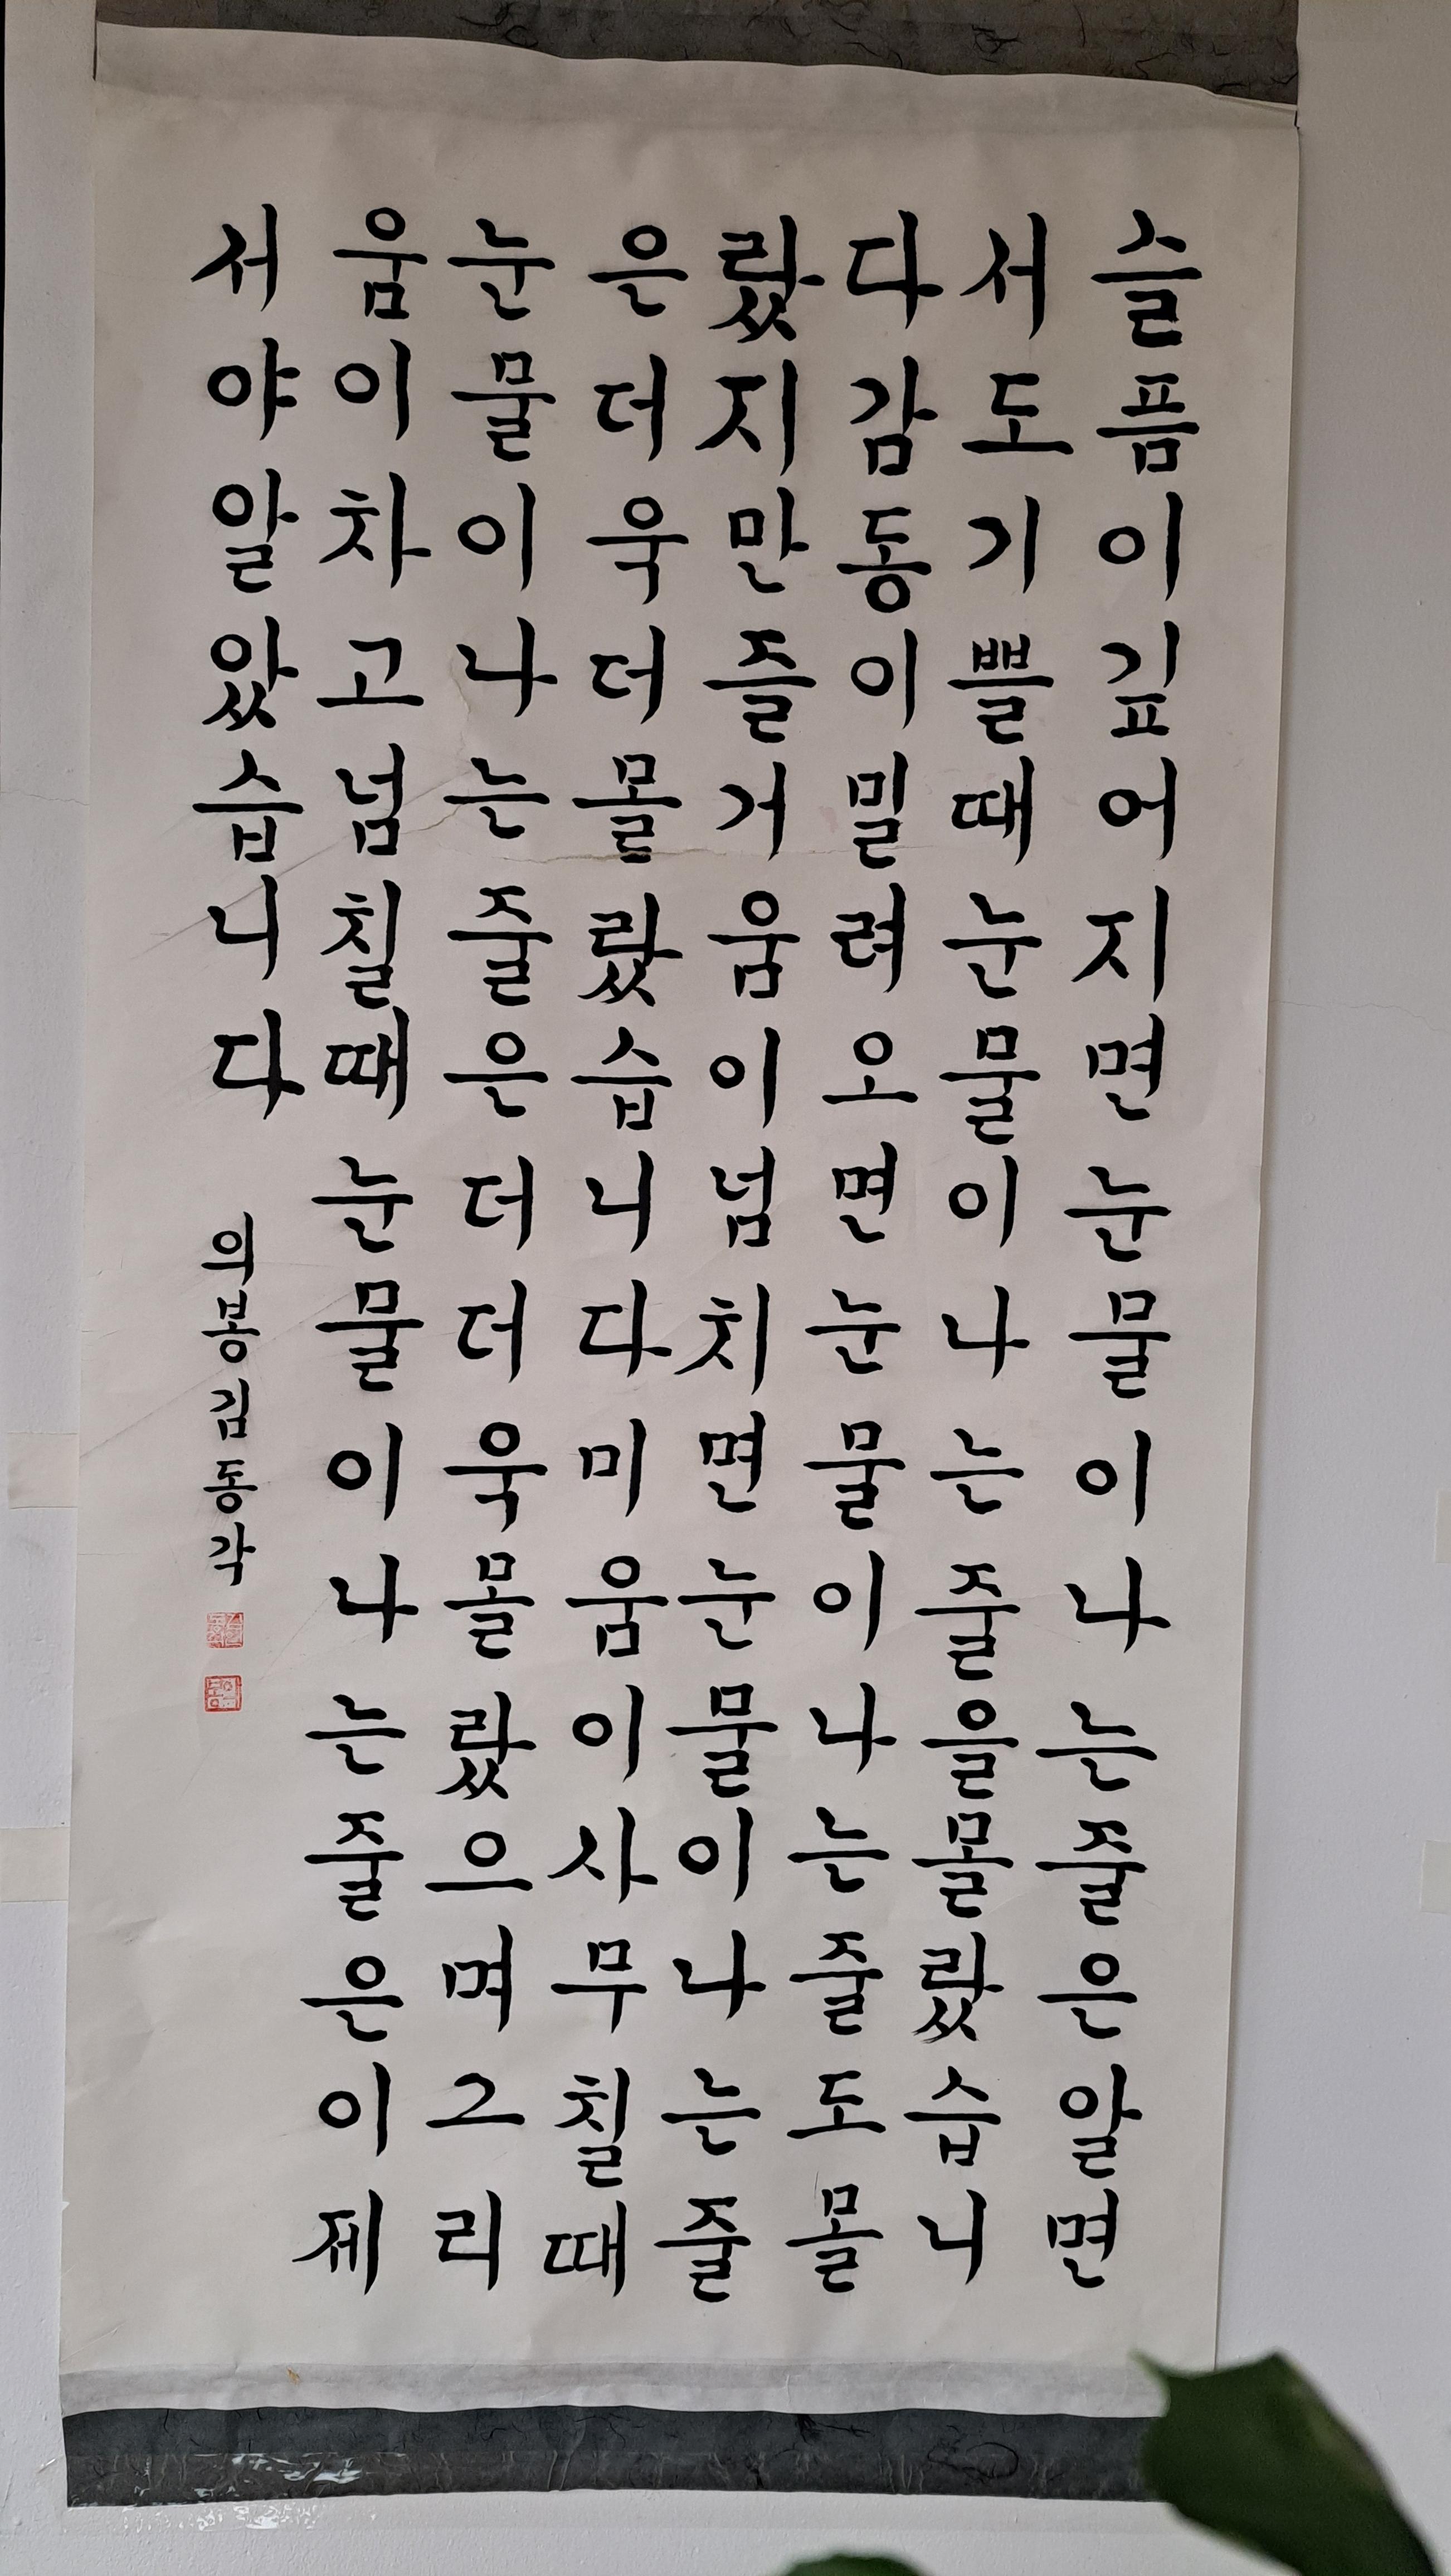 슬픔이깊어지면눈물이나는줄은알면
서도기쁠때눈물이나는줄을몰랐습니
다감동이밀려오면눈물이나는줄도몰
랐지만즐거움이넘치면눈물이나는줄
은더욱더몰랐습니다미움이사무칠때
눈물이나는줄은더더욱몰랐으며그리
움이차고넘칠때눈물이나는줄은이제
서야알았습니다
의봉김동각